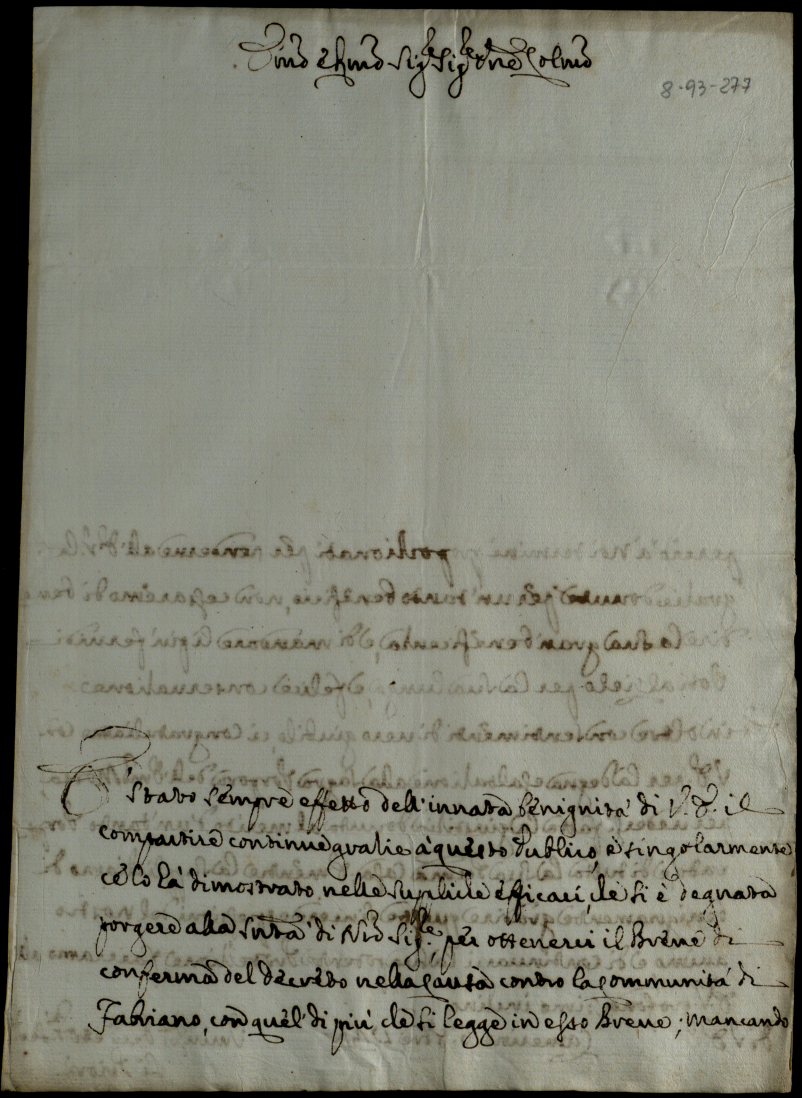 Emō e Rmō Sigre Sigre Prone Colmō
8-93-277
È stato sempre effetto dell'innata benignità di V. E. il
compartire continue gratie à questo Publico, e singolarmente
ce lo hà dimostrato nelle supliche efficaci, che si è degnata
porgere alla Sntà di Nrō Sigre, per ottenerci il Breve di
conferma del decreto nella causa contro la Communità di
Fabriano, con quel' di più che si legge in esso Breve; mancando